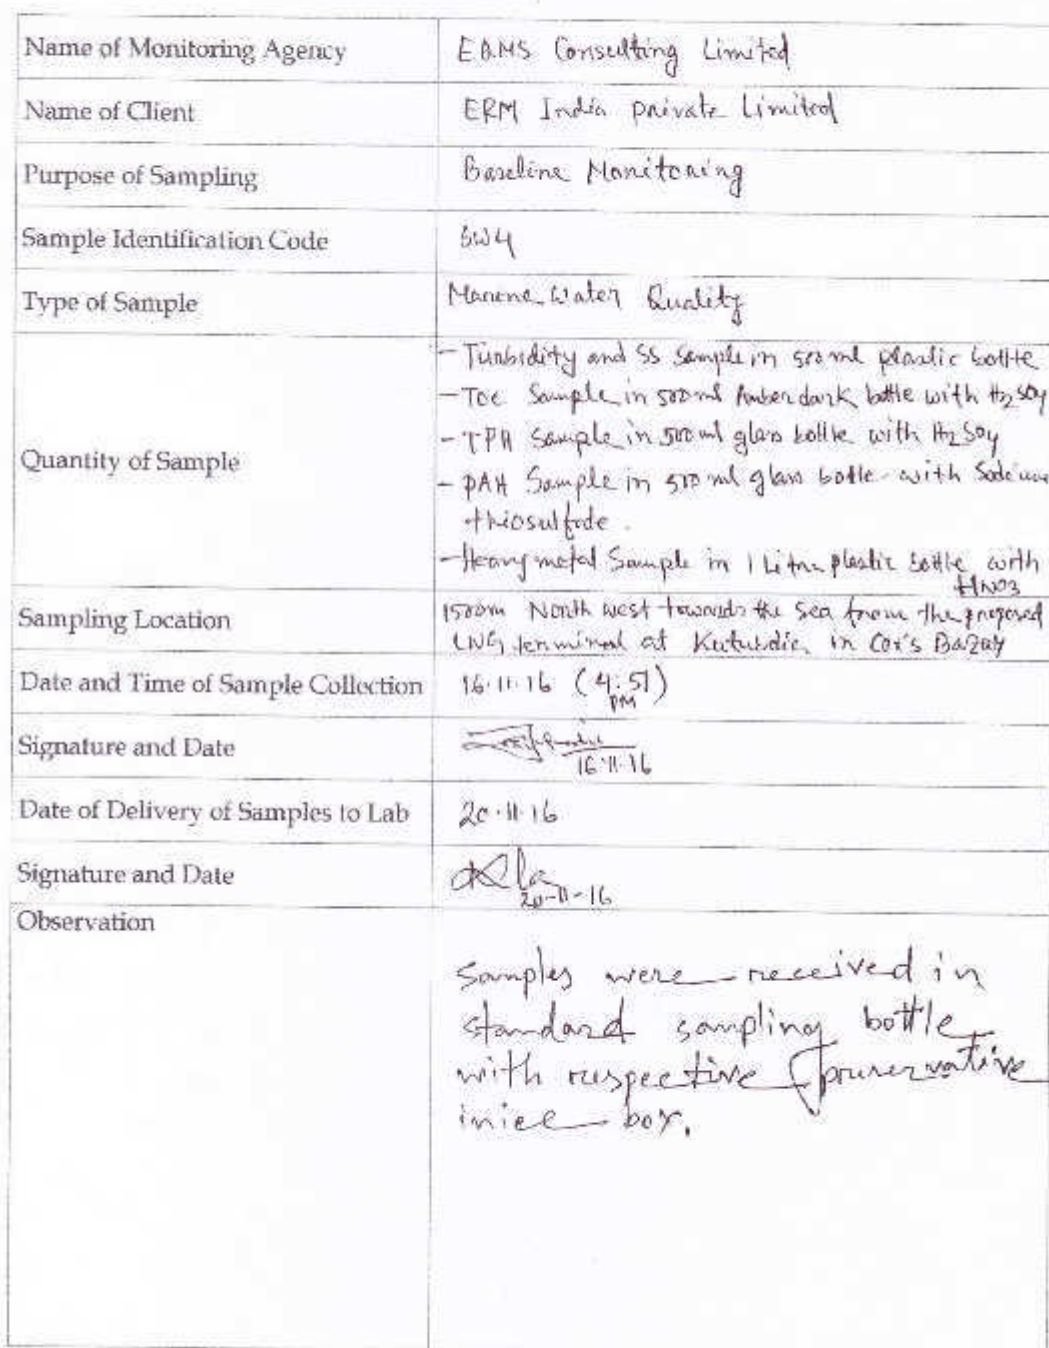 Name of Monitoring Agency EQMS Consulting Limited
Name of Client ERM India private Limited
Purpose of Sampling Baseline Monitoring
Sample Identification Code SW4
Type of Sample Marine Water Quality
Quantity of Sample
- Turbidity and SS Sample in 500 ml plastic bottle
- TOC Sample in 500 ml Amber dark bottle with H2SO4
- TPH Sample in 500 ml glass bottle with H2SO4
- PAH Sample in 500 ml glass bottle with Sodium
thiosulfate.
- Heavy metal Sample in 1 Litre plastic bottle with
HNO3
Sampling Location 1500m North west towards the sea from the proposed
LNG terminal at Kutubdia in Cox's Bazar
Date and Time of Sample Collection 16.11.16 (4:51)
PM
Signature and Date
16.11.16
Date of Delivery of Samples to Lab 20.11.16
Signature and Date
20-11-16
Observation
Samples were received in
standard sampling bottle
with respective preservative
in ice box.